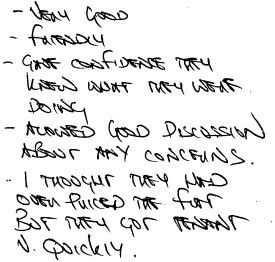 - VERY GOOD
- FRIENDLY
- GAVE CONFIDENCE THEY
KNEW WHAT THEY WERE
DOING
- ALLOWED GOOD DISCUSSION
ABOUT ANY CONCERNS.
- I THOUGHT THEY HAD
OVER PRICED THE FLAT
BUT THEY GOT TENANT
V. QUICKLY.